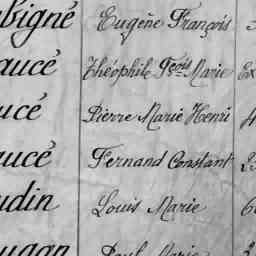 bigné Eugène François
aucé Théophile Fçois Marie Ex
ucé Pierre Marie Henri 4
aucé Fernand Constant 23
udin Louis Marie 6
Paul Marie